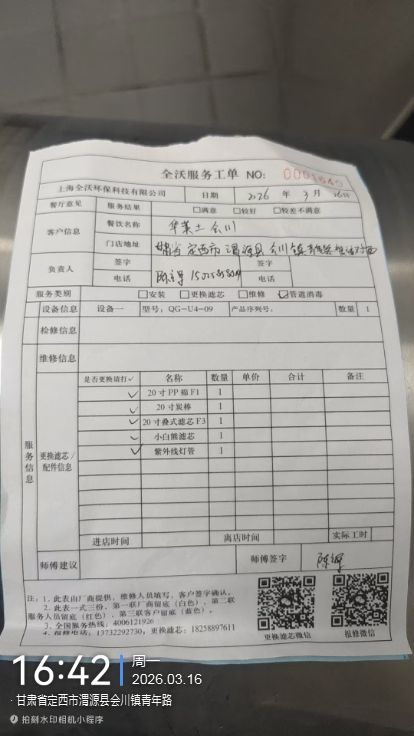 全沃服务工单 NO:
上海全沃环保科技有限公司 日期 2026 年 3 月 16日
餐厅意见 服务结果 □满意 □较好 □较差不满意
客户信息 餐饮名称 华莱士 会川
门店地址 甘肃省定西市渭源县会川镇
负责人 签字 签字
电话 电话
服务类别 □安装 □更换滤芯 □维修 ☑管道消毒
设备信息 设备一 型号: QG-U4-09 产品序列号: 数量 1
检修信息
维修信息
服务信息 更换滤芯/配件信息
是否更换请打✓ 名称 数量 单价 合计 备注
✓ 20寸PP棉F1 1
✓ 20寸炭棒 1
✓ 20寸叠式滤芯F3 1
✓ 小白熊滤芯 1
✓ 紫外线灯管 1
进店时间 离店时间 实际工时
师傅建议 师傅签字
注: 1. 此表由厂商提供, 维修人员填写, 客户签字确认。
2. 此表一式三份, 第一联厂商留底(白色), 第二联
服务人员留底(红色), 第三联客户留底(蓝色)。
3. 全国服务热线: 4006121926
4. 报修电话: 13732292730, 更换滤芯: 18258897611
更换滤芯微信 报修微信
16:42 周一
2026.03.16
甘肃省定西市渭源县会川镇青年路
拍刻水印相机小程序